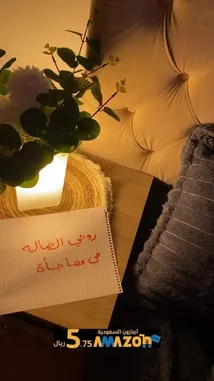 روحي الصاله
في مفاجأة
أمازون السعودية
AMAZON
5.75 ريال